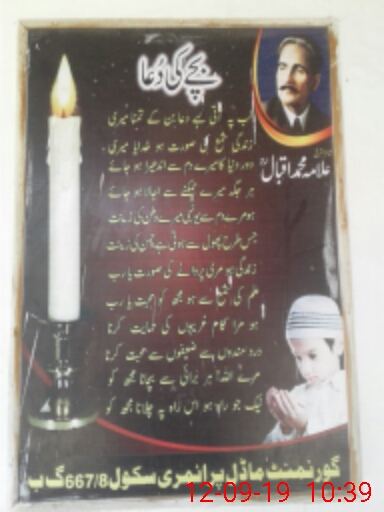 بچے کی دُعا
شاعر مشرق
علامہ محمد اقبال
لب پہ آتی ہے دعا بن کے تمنا میری
زندگی شمع کی صورت ہو خدایا میری
دور دنیا کا میرے دم سے اندھیرا ہو جائے
ہر جگہ میرے چمکنے سے اجالا ہو جائے
ہو میرے دم سے یونہی میرے وطن کی زینت
جس طرح پھول سے ہوتی ہے چمن کی زینت
زندگی ہو مری پروانے کی صورت یا رب
علم کی شمع سے ہو مجھ کو محبت یا رب
ہو مرا کام غریبوں کی حمایت کرنا
درد مندوں سے ضعیفوں سے محبت کرنا
مرے اللہ! ہر برائی سے بچانا مجھ کو
نیک جو راہ ہو اس راہ پہ چلانا مجھ کو
گورنمنٹ ماڈل پرائمری سکول 667/8 گ ب
12-09-19 10:39